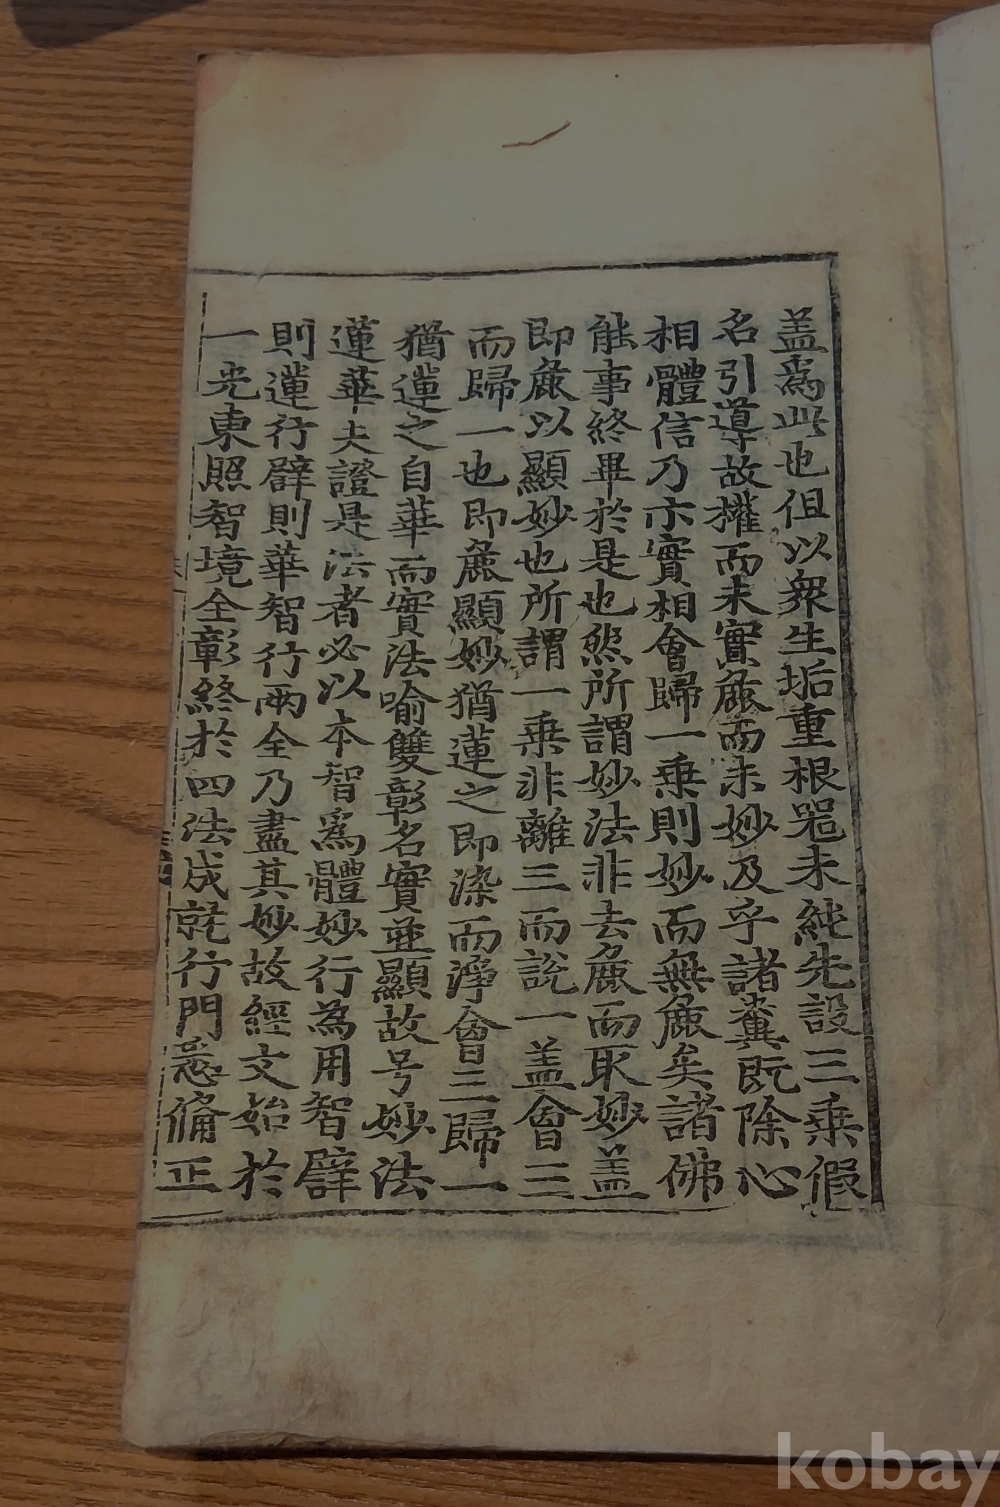 盖爲此也但以衆生垢重根器未純先設三乗假
名引導故權而未實麁而未妙及乎諸糞既除心
相體信乃示實相會歸一乗則妙而無麁矣諸佛
能事終畢於是也然所謂妙法非去麁而取妙盖
即麁以顯妙也所謂一乗非離三而說一盖會三
而歸一也即麁顯妙猶蓮之即染而淨會三歸一
猶蓮之自華而實法喻雙彰名實並顯故号妙法
蓮華夫證是法者必以本智爲體妙行為用智譬
則蓮行譬則華智行兩全乃盡其妙故經文始於
一光東照智境全彰終於四法成就行門悉俻正
kobay